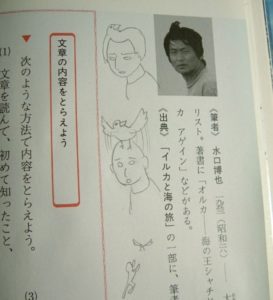 《筆者》 水口博也 一九五三(昭和二八)——
リスト。著書に「オルカ——海の王シャチ
カ アゲイン」などがある。
《出典》 「イルカと海の旅」の一部に、筆者
文章の内容をとらえよう
▼ 次のような方法で内容をとらえよう。
(1) 文章を読んで、初めて知ったこと、
(3)